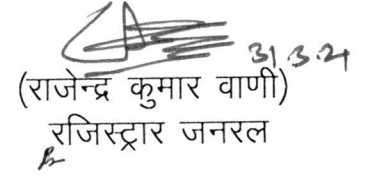 31.3.21
(राजेन्द्र कुमार वाणी)
रजिस्ट्रार जनरल